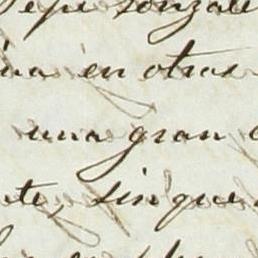 Pepe Gonzale
ina en otras
una gran
te, sin que